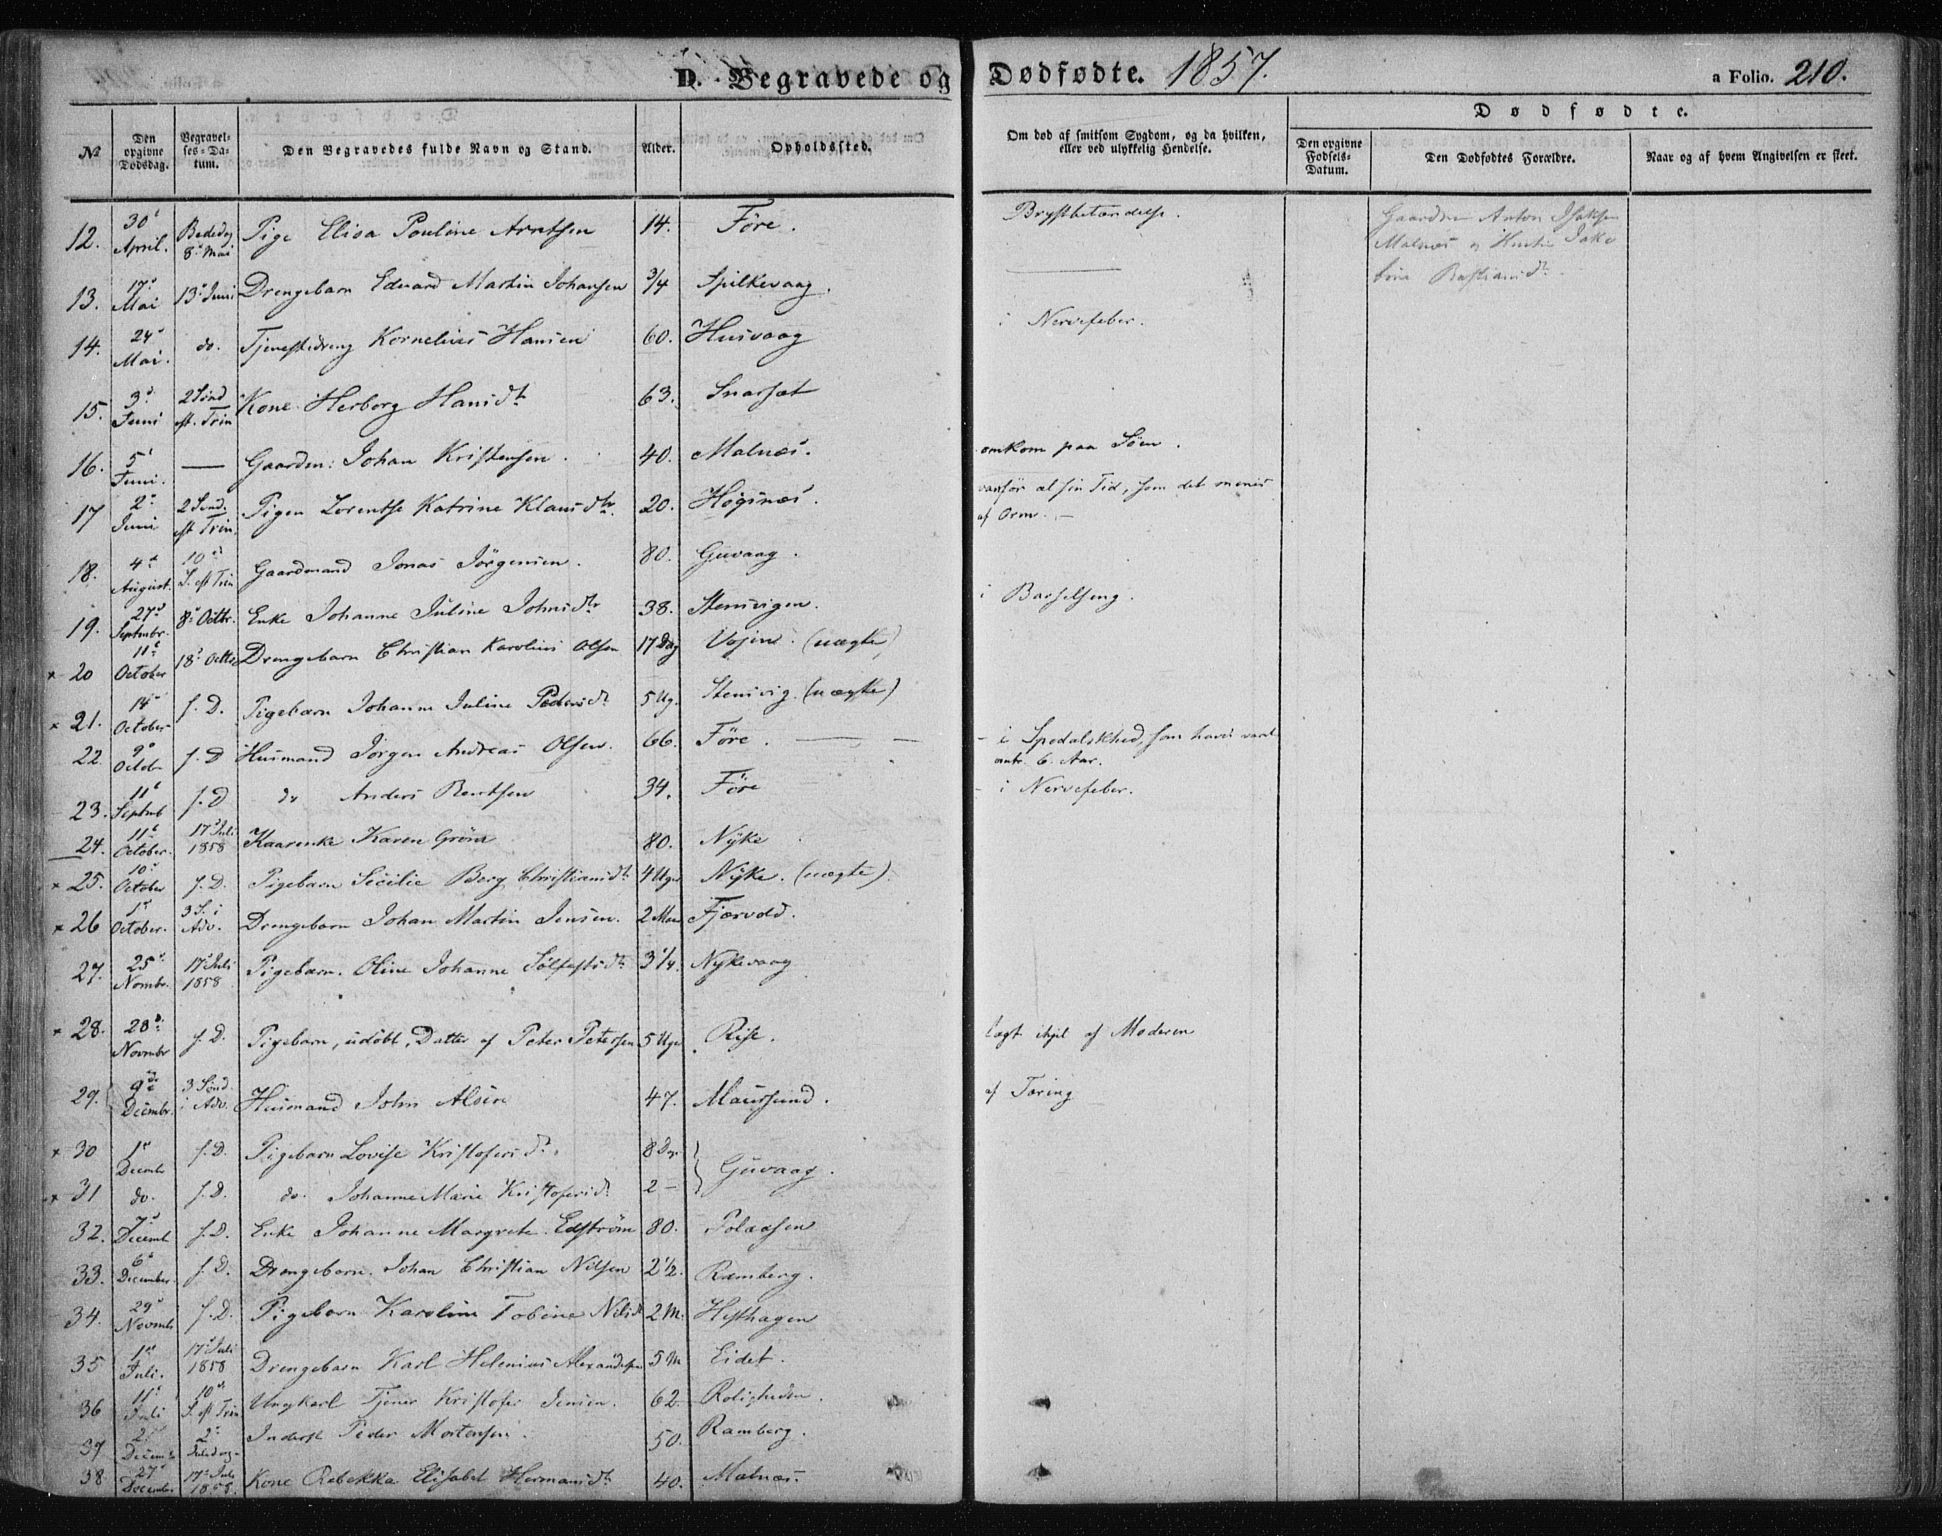 D. Begravede og Dødfødte. 1857. a Folio. 210.
Dødfødte.
No Den opgivne Dødsdag. Begravelses-Datum. Den Begravedes fulde Navn og Stand. Alder. Opholdssted. Om død af smitsom Sygdom, og da hvilken, eller ved ulykkelig Hendelse. Den opgivne Fødsels-Datum. Den Dødfødtes Forældre. Naar og af hvem Angivelsen er skeet.
12. 30 April. Bededag 8 Mai Pige Elisa Pouline Arntsen 14. Före. Brystbetændelse. Gaardm Anton Isaksen
Malnæs og Hustru Jako
bina Bastiansdt.
13. 17 Mai 13 Juni Drengebarn Edvard Martin Johansen 3/4 Spilkevaag.
14. 24 Mai. do. Tjenestedreng Kornelius Hansen 60. Husvaag i Nervefeber.
15. 3 Juni 2 Sønd eft. Trin Kone Herborg Hansdtr 63. Snarset
16. 5 Juni. — Gaardm: Johan Kristensen. 40. Malnæs. omkom paa Søen.
17 2 Juni 2 Sønd. eft Trin. Pigen Lorentse Katrine Klausdtr. 20. Högsnæs. vanför al sin Tid, som det menes
af Orm. —
18. 4 August. 10 S. eft Trin Gaardmand Jonas Jörgensen. 80. Guvaag.
19. 27 Septmbr. 8 Octbr. Enke Johanne Juline Johnsdtr 38. Stensvigen. i Barselseng.
× 20 11 October 18 Octbr Drengebarn Christian Karolius Olsen 17 Dag Vojen. (uægte)
× 21. 14 October f. D. Pigebarn Johanne Juline Pedersdt 5 Ug. Stensvig. (uægte)
22. 9 Octobr f. D Husmand Jörgen Andreas Olsen. 66. Före. — — i Spedalskhed, som havde varet
omtr. 6. Aar.
23. 11 Septmb f. D do Anders Bentsen 34. Före - i Nervefeber.
24. 11 October. 17 Juli 1858 Kaarenke Karen Gröna 80. Nyke
× 25. 10 October f. D. Pigebarn Secilie Berg Christiansdt 4 Uger Nyke. (uægte).
× 26 1 October. 3 S. i Adv. Drengebarn Johan Martin Jensen. 2 Maan Fjærvold.
27. 25 Novmbr. 17 Juli 1858 Pigebarn. Oline Johanne Sölfestsdtr 3 1/4. Nykevaag
× 28. 28 Novmbr f. D. Pigebarn, udöbt, Datter af Peter Petersen 5 Uger Rise. lagt ihjel af Moderen
29. 9 Decembr. 3 Sønd i Adv. Husmand John Alsen 47. Maursund. af Tæring
× 30 1 Decembr f. D. Pigebarn Lovise Kristofersdt. 8 Dage Guvaag.
× 31 do. f. D. do. Johanne Marie Kristofersdt 2 —
32. 7 Decemb f. D. Enke Johanne Margrete Edström 80. Polaasen
33. 6 December. f. D. Drengebarn. Johan Christian Nilsen 2 1/2. Ramberg.
34. 29 Novmb f. D. Pigebarn Karoline Tobine Nilsdt 2 M. Hesthagen
35 1 Juli. 17 Juli 1858 Drengebarn Karl Helenius Alexandersen 5 M Eidet.
36 11 Juli 10 S. eft Trin Ungkarl Tjener Kristofer Jensen. 62 Roligheden.
37 2 Decembr 2 Juledag - Inderst Peder Mortensen. 50. Ramberg.
38 27 December. 17 Juli 1858. Kone Rebekka Elisabet Hermansdt 40. Malnæs.